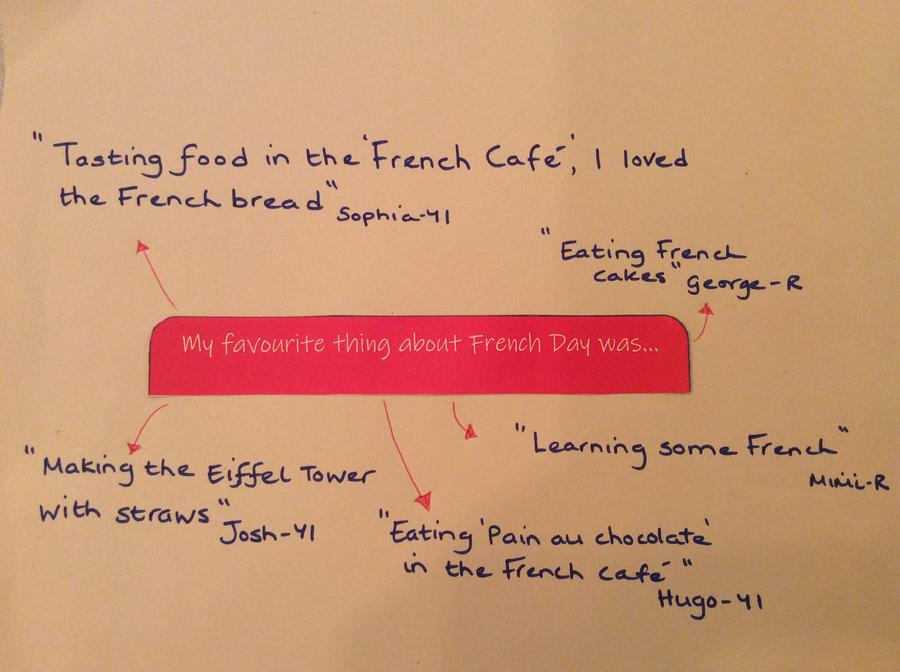 "Tasting food in the 'French Café', I loved
the French bread" Sophia-Y1
"Eating French
cakes" George-R
My favourite thing about French Day was...
"Making the Eiffel Tower
with straws"
Josh-Y1
"Learning some French"
Mimi-R
"Eating 'Pain au chocolate'
in the French café"
Hugo-Y1